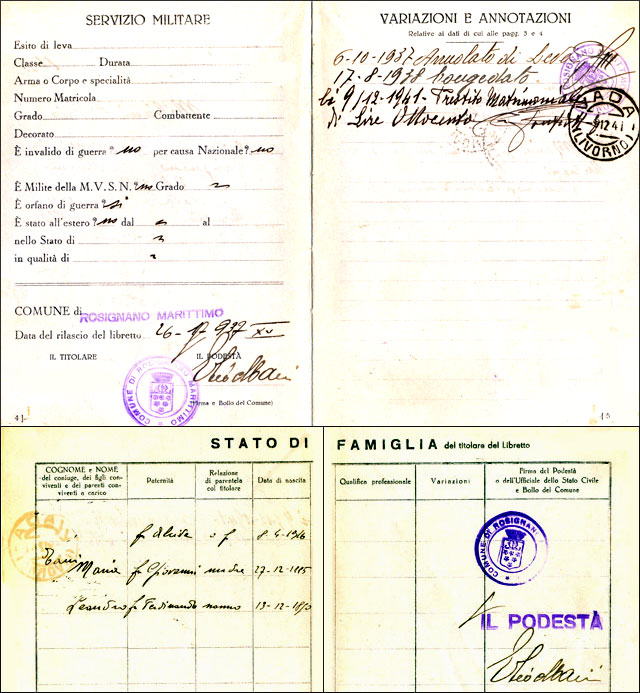 SERVIZIO MILITARE
Esito di leva
Classe Durata
Arma o Corpo e specialità
Numero Matricola
Grado Combattente
Decorato
È invalido di guerra? no per causa Nazionale? no
È Milite della M.V.S.N. ? no Grado
È orfano di guerra? si
È stato all'estero? no dal al
nello Stato di
in qualità di
COMUNE di ROSIGNANO MARITTIMO
Data del rilascio del libretto 26-17 937 XV
IL TITOLARE IL PODESTÀ
(Firma e Bollo del Comune)
COMUNE DI ROSIGNANO MARITTIMO
4 ]-
VARIAZIONI E ANNOTAZIONI
Relative ai dati di cui alle pagg. 3 e 4
6-10-1937 Arruolato di Leva
17-8-1938 Congedato
li 9/12-1941- Prestito Matrimoniale
di Lire Ottocento
VADA
12 41
(LIVORNO)
-[ 5
STATO DI FAMIGLIA del titolare del Libretto
COGNOME e NOME del coniuge, dei figli conviventi e dei parenti conviventi a carico
Paternità
Relazione di parentela col titolare
Data di nascita
Qualifica professionale
Variazioni
Firma del Podestà o dell'Ufficiale dello Stato Civile e Bollo del Comune
8-4-1916
Maria f Giovanni madre 27-12-1885
Leandro f Ferdinando nonno 13-12-1850
COMUNE DI ROSIGNAN
IL PODESTÀ